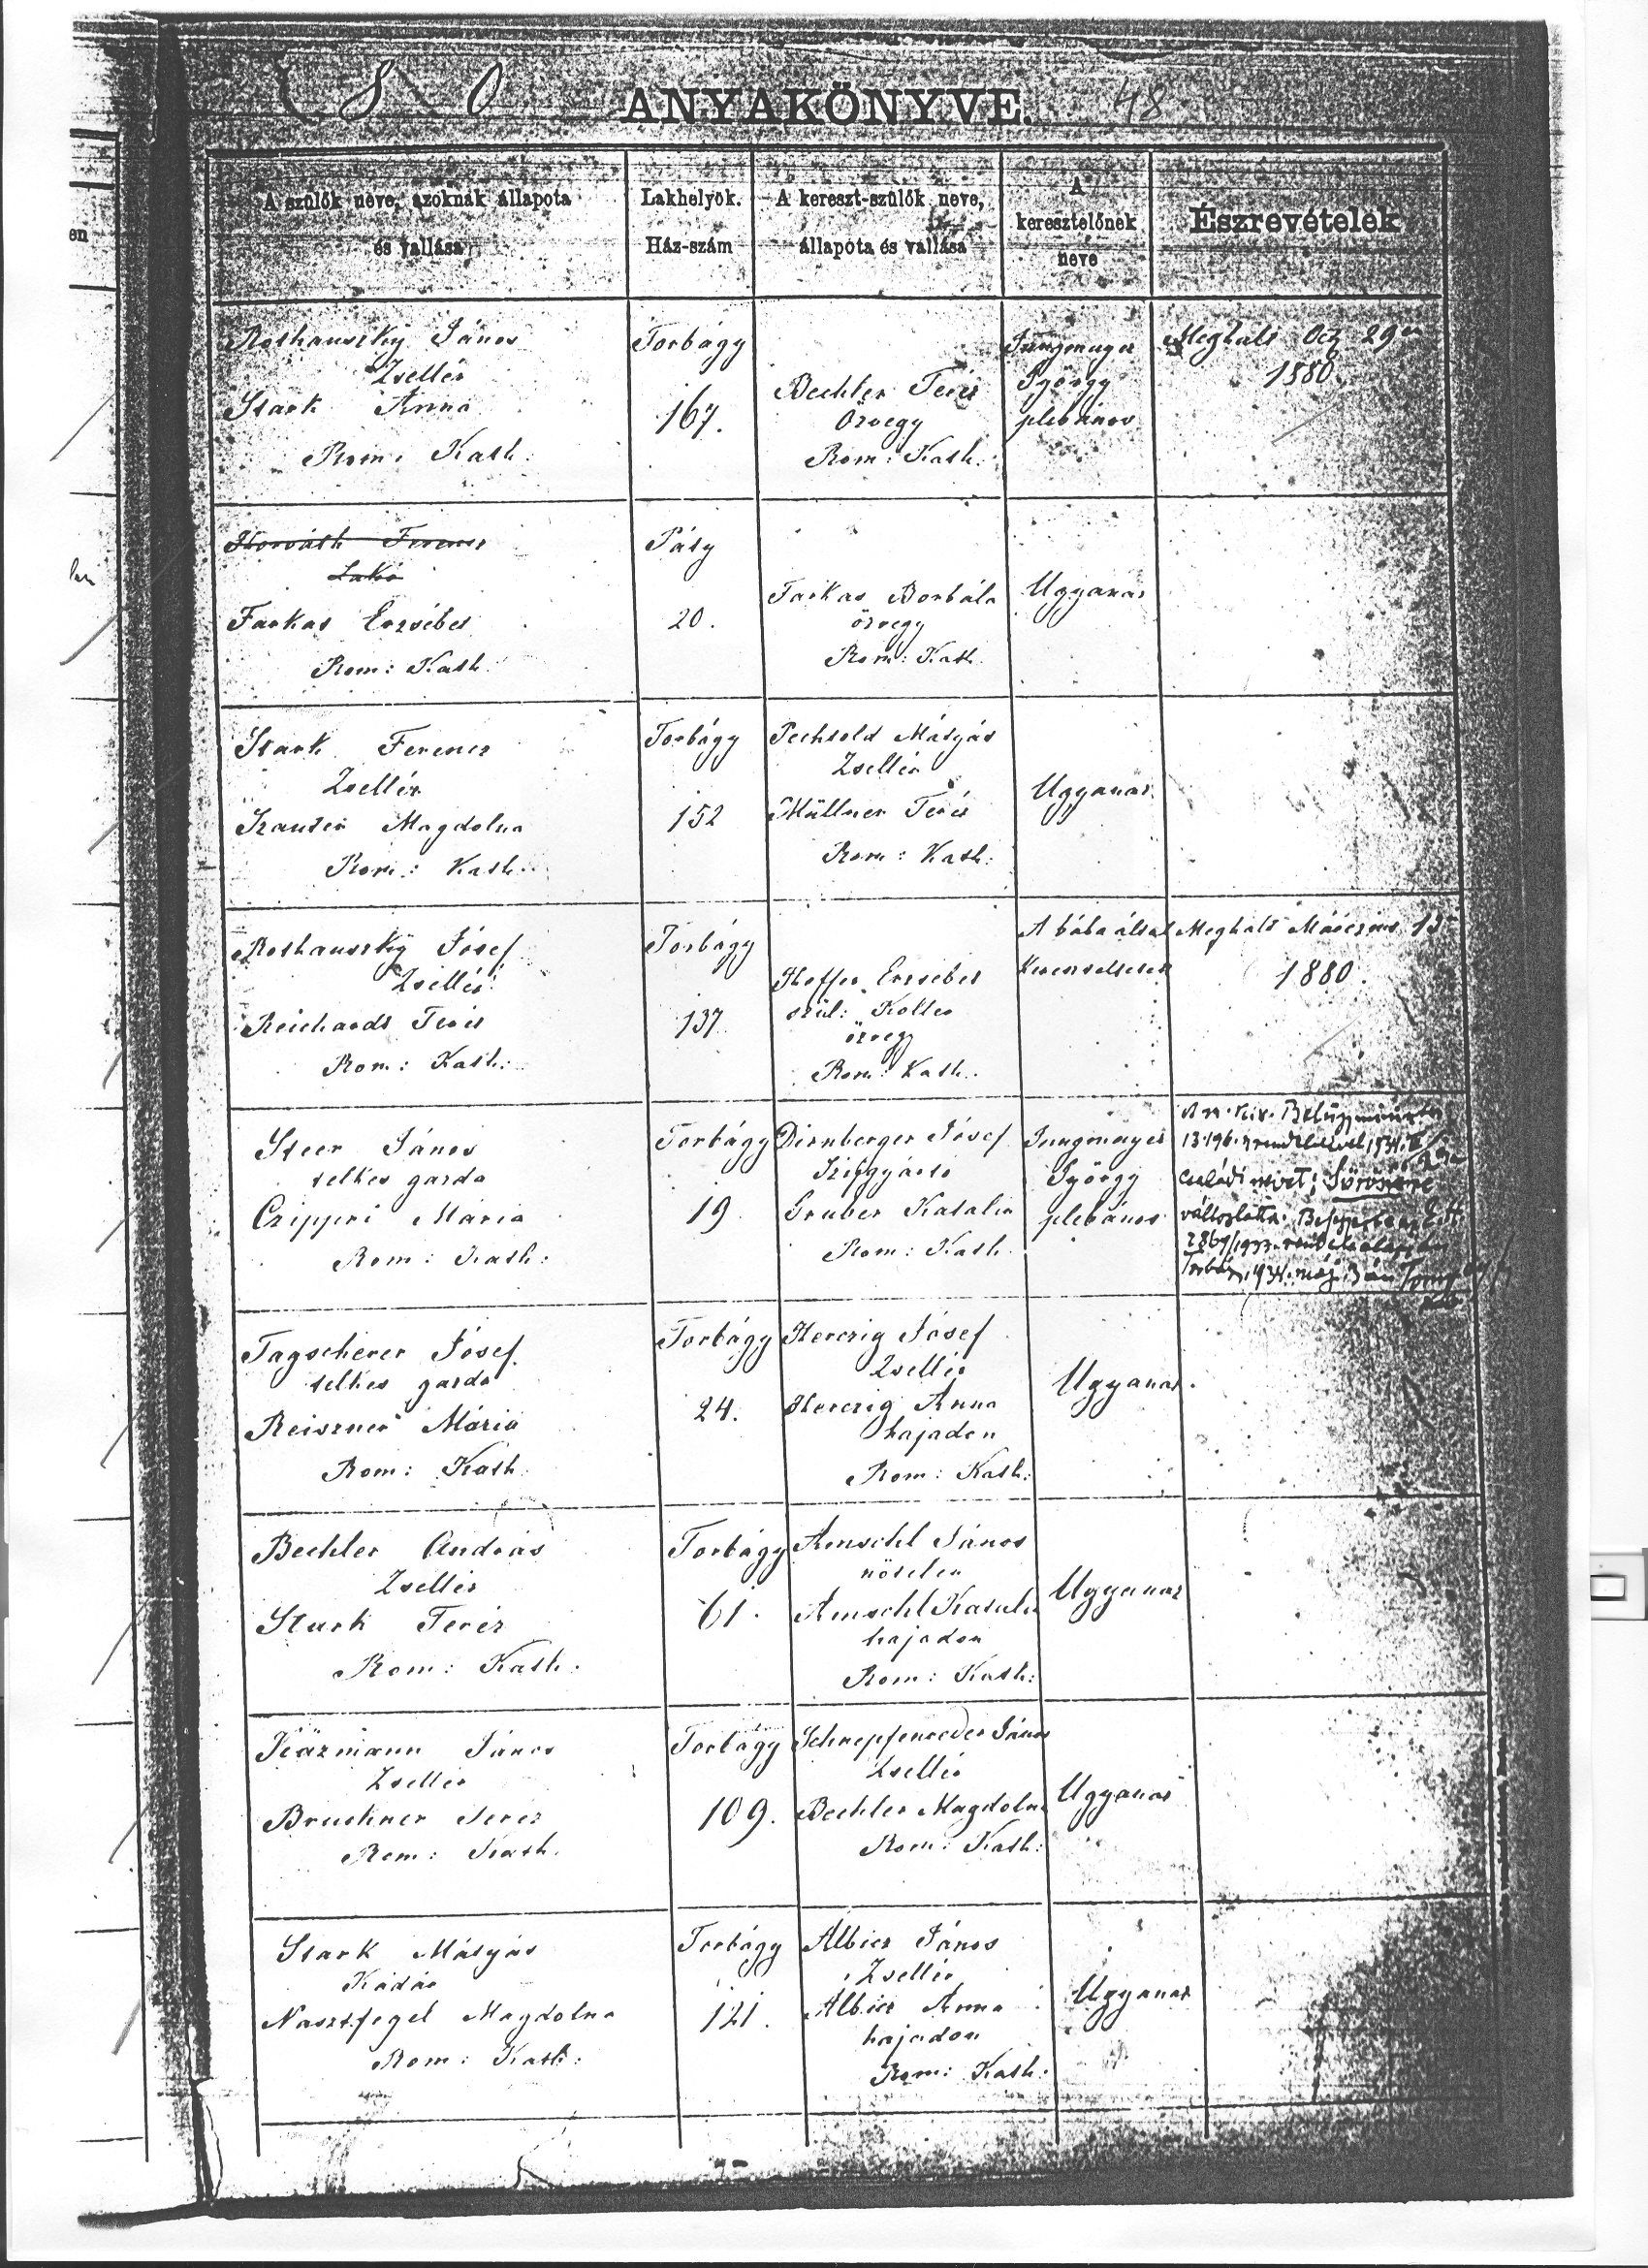 1880
ANYAKÖNYVE. 48
A szülők neve, azoknak állapota
és vallása
Lakhelyök.
Ház-szám
A kereszt-szülők neve,
állapota és vallása
A
keresztelőnek
neve
Észrevételek
Rothauszky János
Zsellér
Stark Anna
Rom: Kath:
Torbágy
167.
Bechler Teréz
Özvegy
Rom: Kath.
Jungmayer
György
plebános
Meghalt Oct 29én
1880
Horváth Ferencz
Lakó
Farkas Erzsébet
Rom: Kath.
Páty
20.
Farkas Borbála
özvegy
Rom: Kath.
Ugyanaz
Stark Ferencz
Zsellér
Szauter Magdolna
Rom: Kath:
Torbágy
152
Pechtold Mátyás
Zsellér
Müllner Teréz
Rom: Kath:
Ugyanaz
Rothauszky József
Zsellér
Reichardt Teréz
Rom: Kath:
Torbágy
137.
Hoffer Erzsébet
szül: Koller
özvegy
Rom: Kath.
A bába által
Kereszteltetett
Meghalt Márczius 15
1880.
Steer János
telkes gazda
Czippri Mária
Rom: Kath:
Torbágy
19.
Dirnberger József
Szíjgyártó
Gruber Katalin
Rom: Kath.
Jungmayer
György
plebános
A m. kir. Belügyminiszter
családi nevét
változtatta.
Tagscherer József
telkes gazda
Reiszner Mária
Rom: Kath.
Torbágy
24.
Herczig József
Zsellér
Herczig Anna
hajadon
Rom: Kath:
Ugyanaz.
Bechler András
Zsellér
Stark Teréz
Rom: Kath:
Torbágy
61.
Amschl János
nőtelen
Amschl Katalin
hajadon
Rom: Kath:
Ugyanaz
Kärzmann János
Zsellér
Bruckner Teréz
Rom: Kath.
Torbágy
109.
Schnepfenreder János
Zsellér
Bechler Magdolna
Rom: Kath:
Ugyanaz
Stark Mátyás
Kádár
Nasztfogel Magdolna
Rom: Kath:
Torbágy
121.
Albicz János
Zsellér
Albicz Anna
hajadon
Rom: Kath:
Ugyanaz